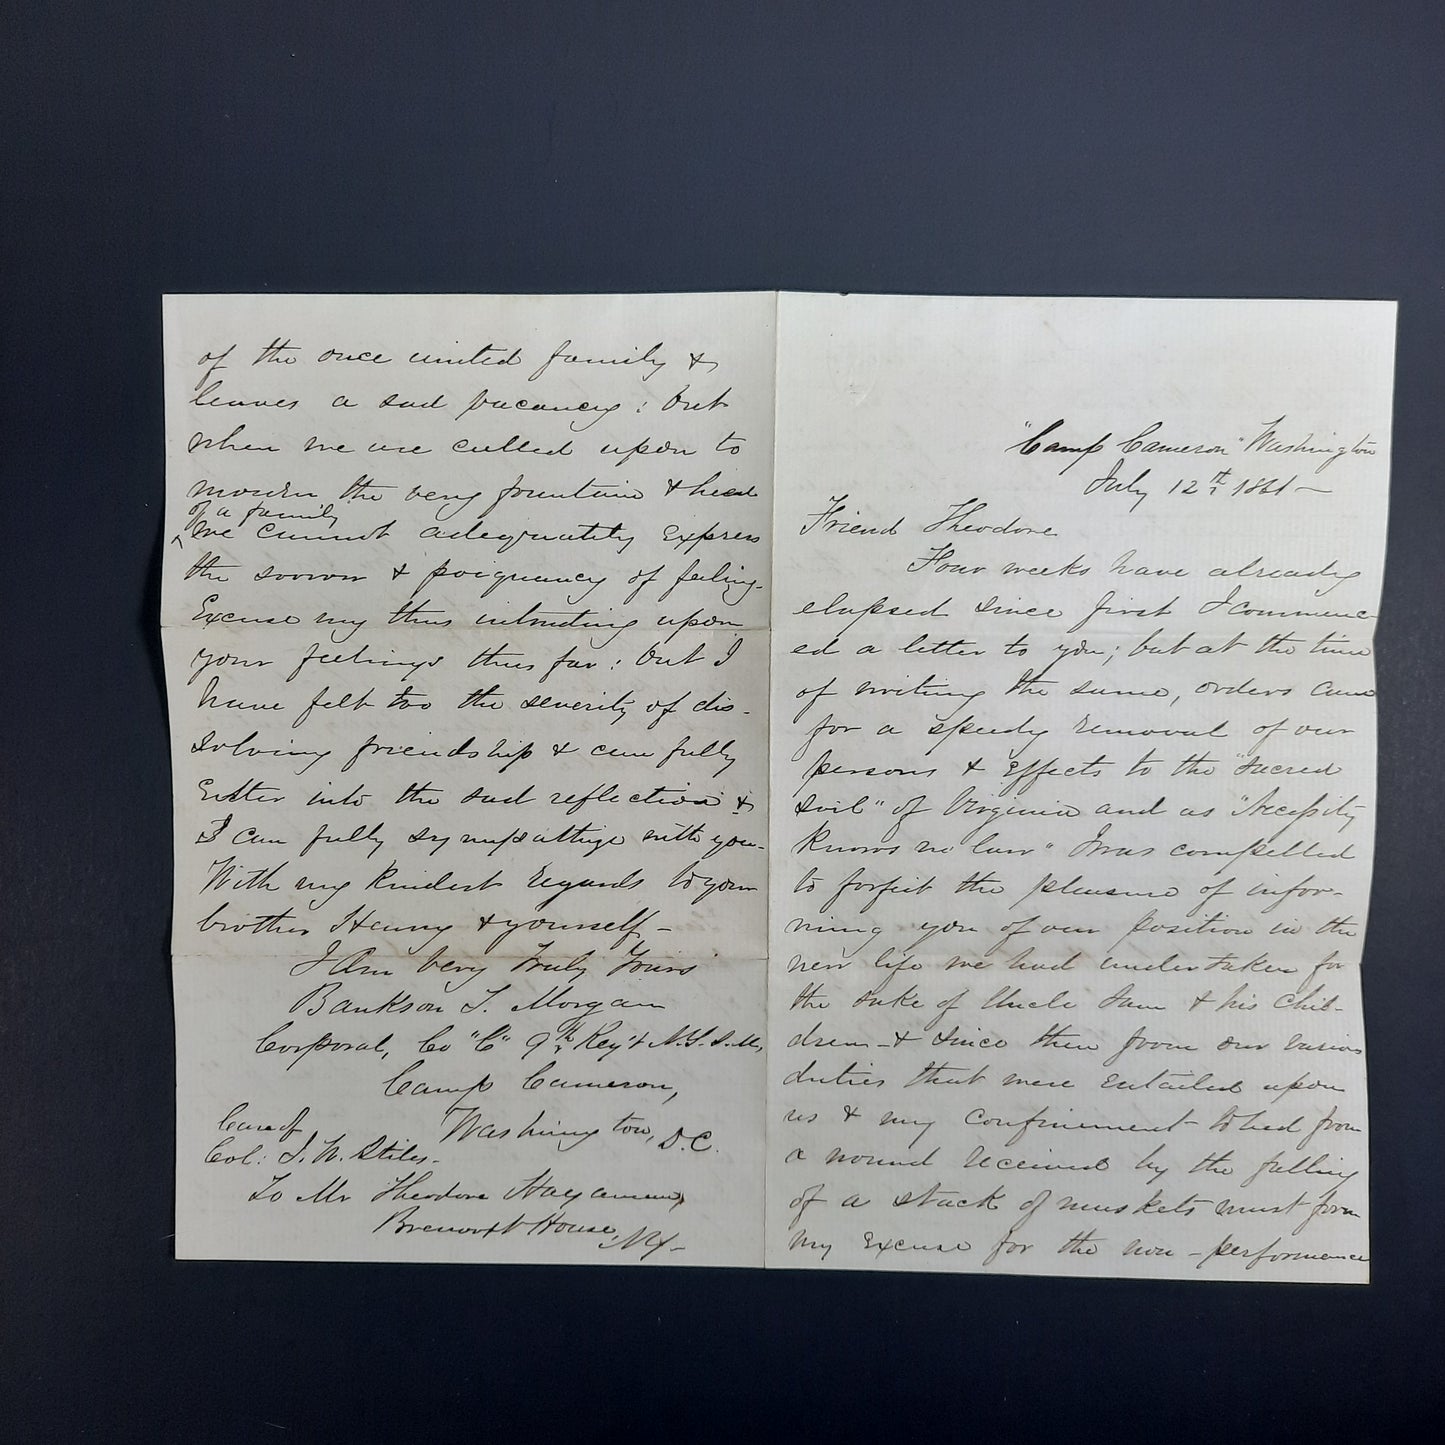 "Camp Cameron" Washington
July 12th 1861 —
Friend Theodore
Four weeks have already
elapsed since first I commenc
ed a letter to you; but at the time
of writing the same, orders came
for a speedy removal of our
persons & Effects to the "sacred
soil" of Virginia and as "Necessity
knows no law" I was compelled
to forfeit the pleasure of infor-
ming you of our position in the
new life we had undertaken for
the sake of Uncle Sam & his Chil-
dren — & since then from our various
duties that were entailed upon
us & my confinement to bed from
a wound received by the falling
of a stack of muskets must form
my Excuse for the non-performance
of the once united family &
leaves a sad vacancy: but
when we are called upon to
mourn the very fountain & head
of a family
we cannot adequately Express
the sorrow & poignancy of feeling.
Excuse my thus intruding upon
your feelings thus far: but I
have felt too the severity of dis-
solving friendship & can fully
Enter into the sad reflection &
I can fully sympathize with you.
With my kindest Regards to your
brother Henry & yourself —
I Am Very Truly Yours
Bankson T. Morgan
Corporal, Co "C" 9th Reg't N.Y.S.M.,
Camp Cameron,
Washington, D.C.
Care of
Col: J. W. Stiles.
To Mr Theodore
Brevoort House, NY —